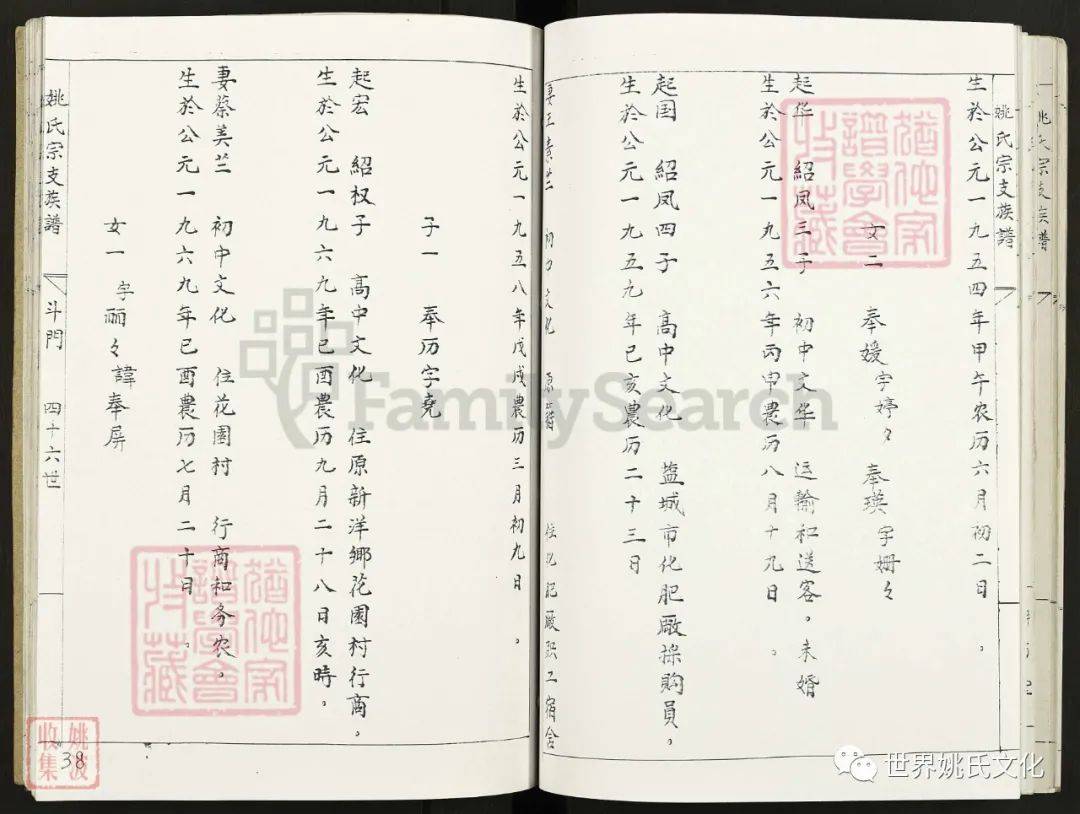 姚氏宗支族譜
生於公元一九五四年甲午农历六月初二日。
女二 奉媛字婷々 奉瑛字姗々
起华 紹凤三子 初中文华 运输和送客。未婚
生於公元一九五六年丙申農历八月十九日。
起国 紹凤四子 高中文化 盐城市化肥廠採购員。
生於公元一九五九年已亥農历二十三日
妻王素兰 初中文化 原籍 住化肥廠职工宿舍
生於公元一九五八年戊戌農历三月初九日。
子一 奉历字尧
起宏 紹权子 高中文化 住原新洋鄉花園村行商。
生於公元一九六九年已酉農历九月二十八日亥時。
妻蔡美兰 初中文化 住花園村 行商和务农。
生於公元一九六九年已酉農历七月二十日。
女一 字丽々諱奉屏
姚氏宗支族譜 斗門 四十六世
38
猶他家譜學會收藏
猶他家譜學會收藏
姚波收集
FamilySearch
世界姚氏文化
姚氏宗支族譜